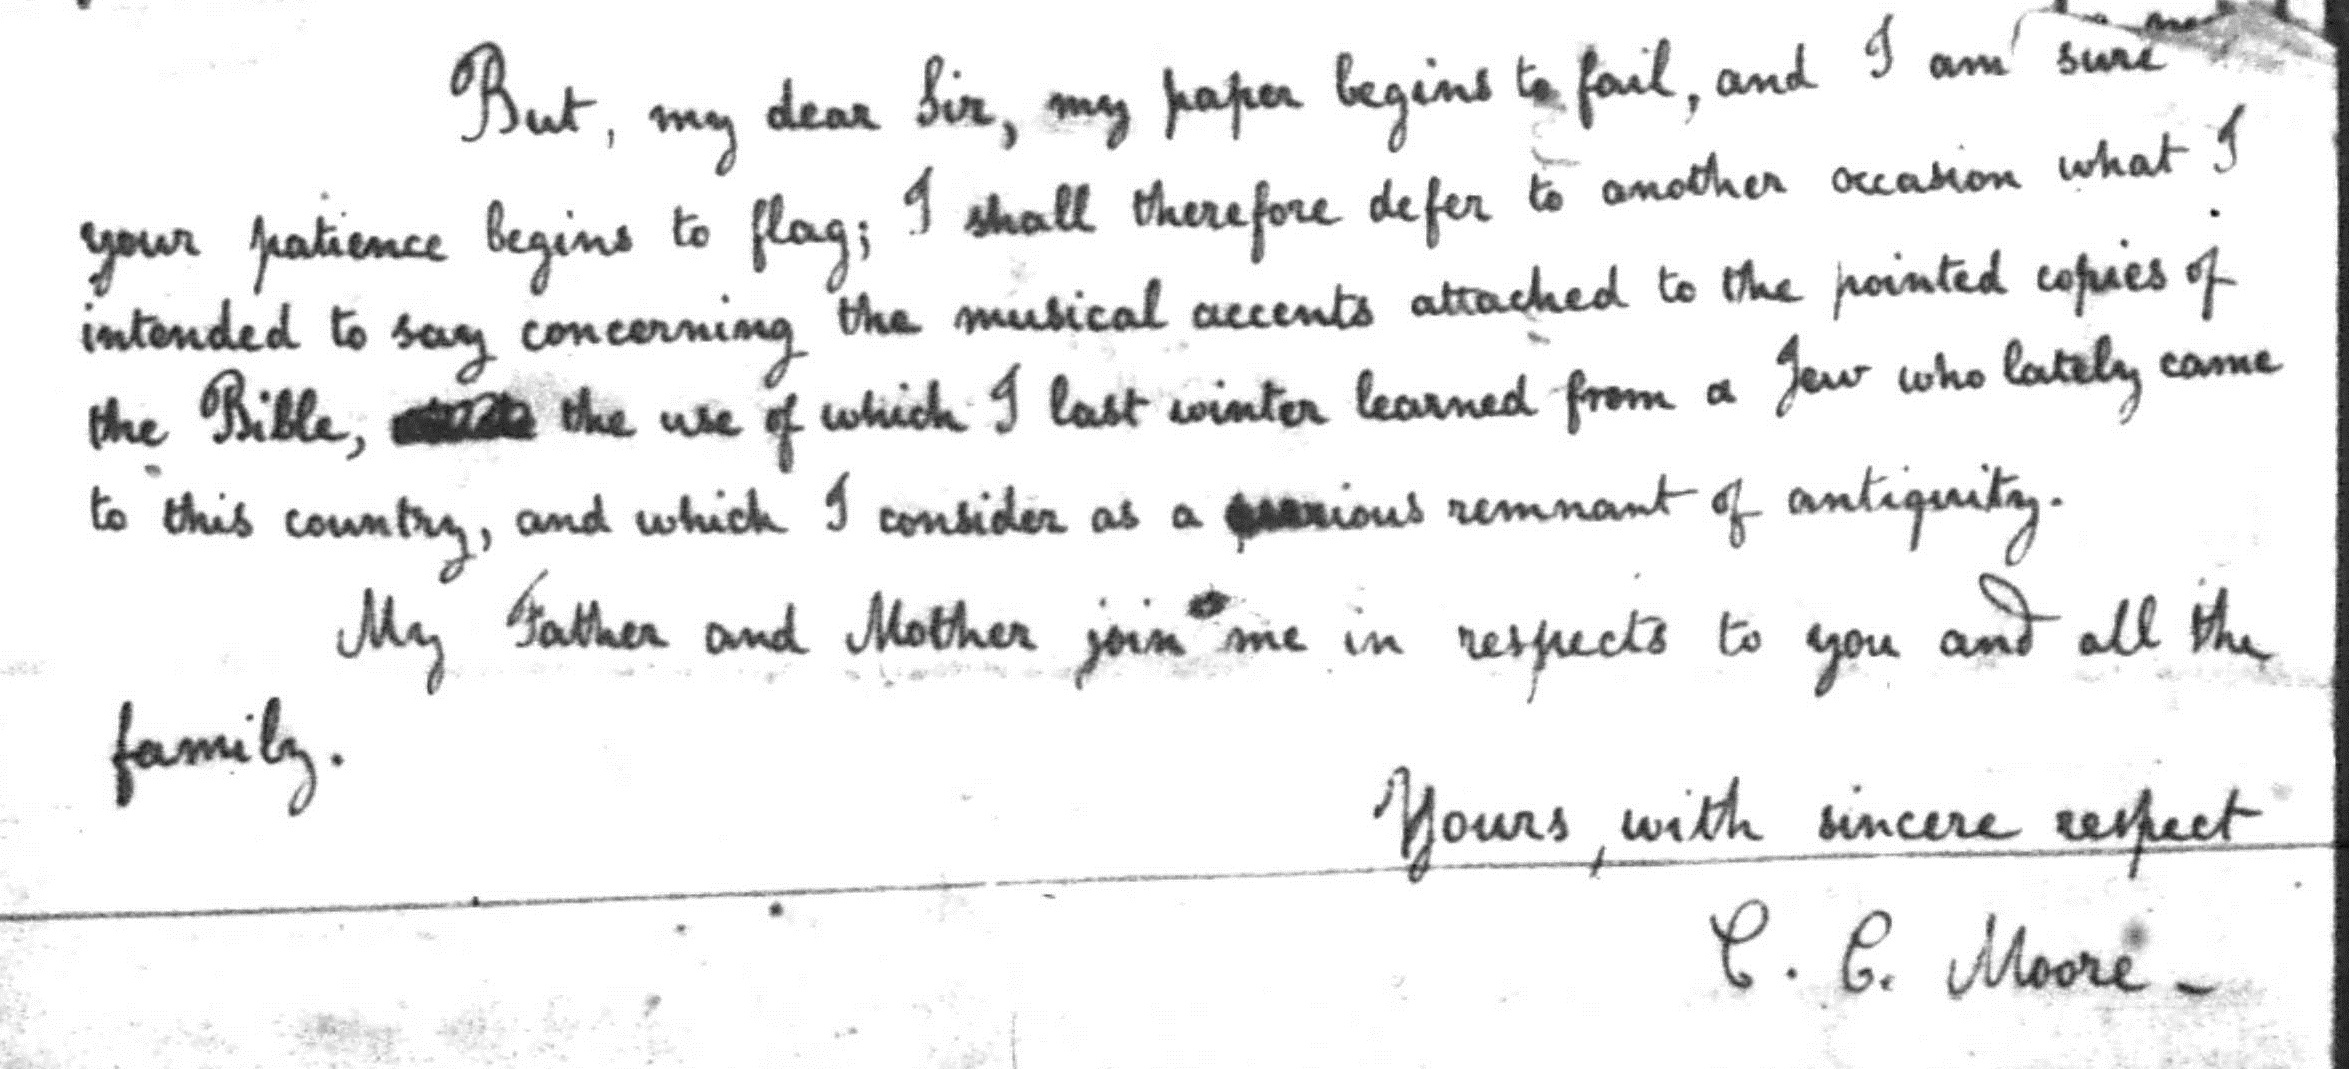 But, my dear Sir, my paper begins to fail, and I am sure
your patience begins to flag; I shall therefore defer to another occasion what I
intended to say concerning the musical accents attached to the pointed copies of
the Bible, the use of which I last winter learned from a Jew who lately came
to this country, and which I consider as a remnant of antiquity.
My Father and Mother join me in respects to you and all the
family.
Yours, with sincere respect
C. C. Moore-